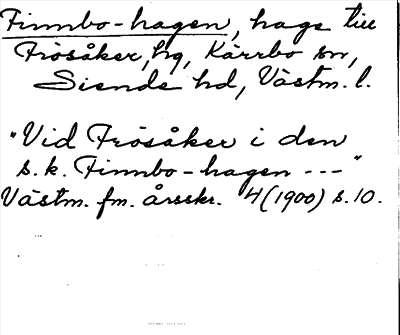 Finnbo-hagen, hage till
Frösåker, hg, Kärrbo sn,
Siende hd, Västm. l.
"Vid Frösåker i den
s.k. Finnbo-hagen ---"
Västm. fm. årsskr. 4(1900) s.10.